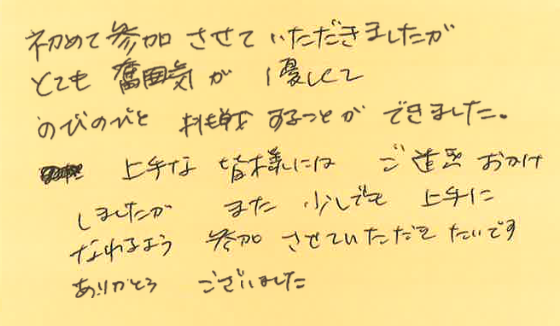 初めて参加させていただきましたが
とても雰囲気が優しくて
のびのびと挑戦することができました。
上手な皆様にはご迷惑おかけ
しましたがまた少しでも上手に
なれるよう参加させていただきたいです
ありがとうございました